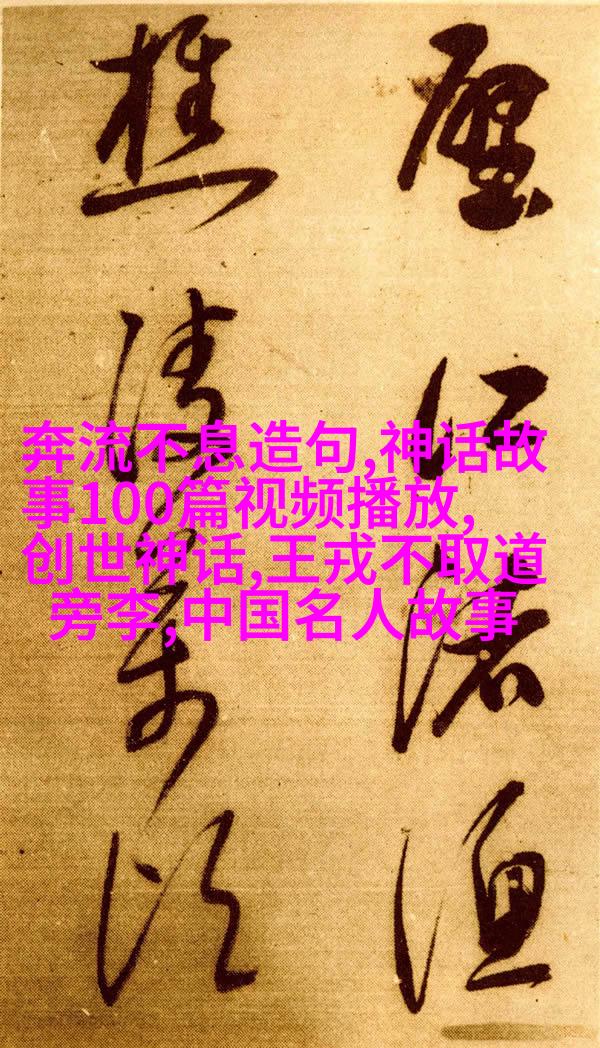 江渚漁
樵清
奔流不息造句,神话故
事100篇视频播放,
创世神话,王戎不取道
旁李,中国名人故事